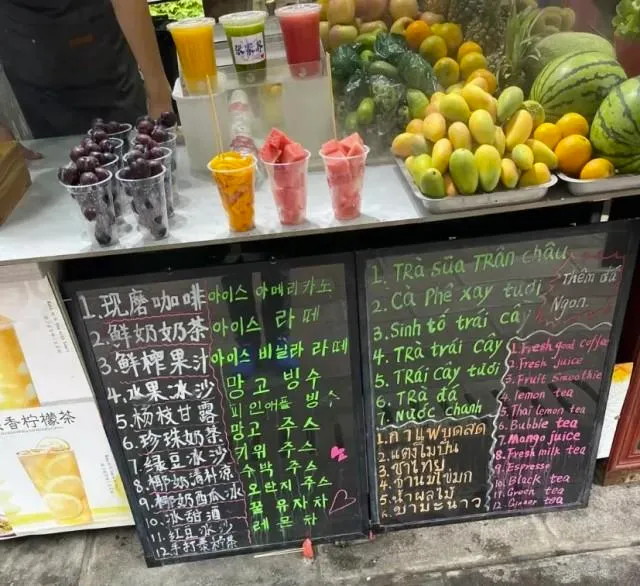 1.现磨咖啡
2.鲜奶奶茶
3.鲜榨果汁
4.水果冰沙
5.杨枝甘露
6.珍珠奶茶
7.绿豆冰沙
8.椰奶清补凉
9.椰奶西瓜冰
10.冰甜酒
11.红豆冰沙
12.手打柠檬茶
아이스 아메리카노
아이스 라떼
아이스 바닐라 라떼
망고 빙수
피인애플 빙수
망고 주스
키위 주스
수박 주스
오란지 주스
꿀 유자차
레몬 차
1. Trà sữa TRÂN CHÂU
2. Cà Phê xay tươi
3. Sinh tố trái cây
4. TRà trái cây
5. TRái Cây tươi
6. TRà đá
7. Nước chanh
Thêm đá
Ngon
1. กาแฟบดสด
2. แตงโมปั่น
3. ชาไทย
4. ชานมไข่มุก
5. น้ำผลไม้
6. ชามะนาว
1. Fresh good coffee
2. Fresh juice
3. Fruit Smoothie
4. lemon tea
5. Thai lemon tea
6. Bubble tea
7. Mango juice
8. Fresh milk tea
9. Espresso
10. Black tea
11. Green tea
12. Ginger tea
香柠檬茶